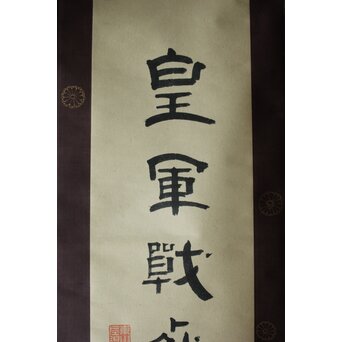 皇軍戰